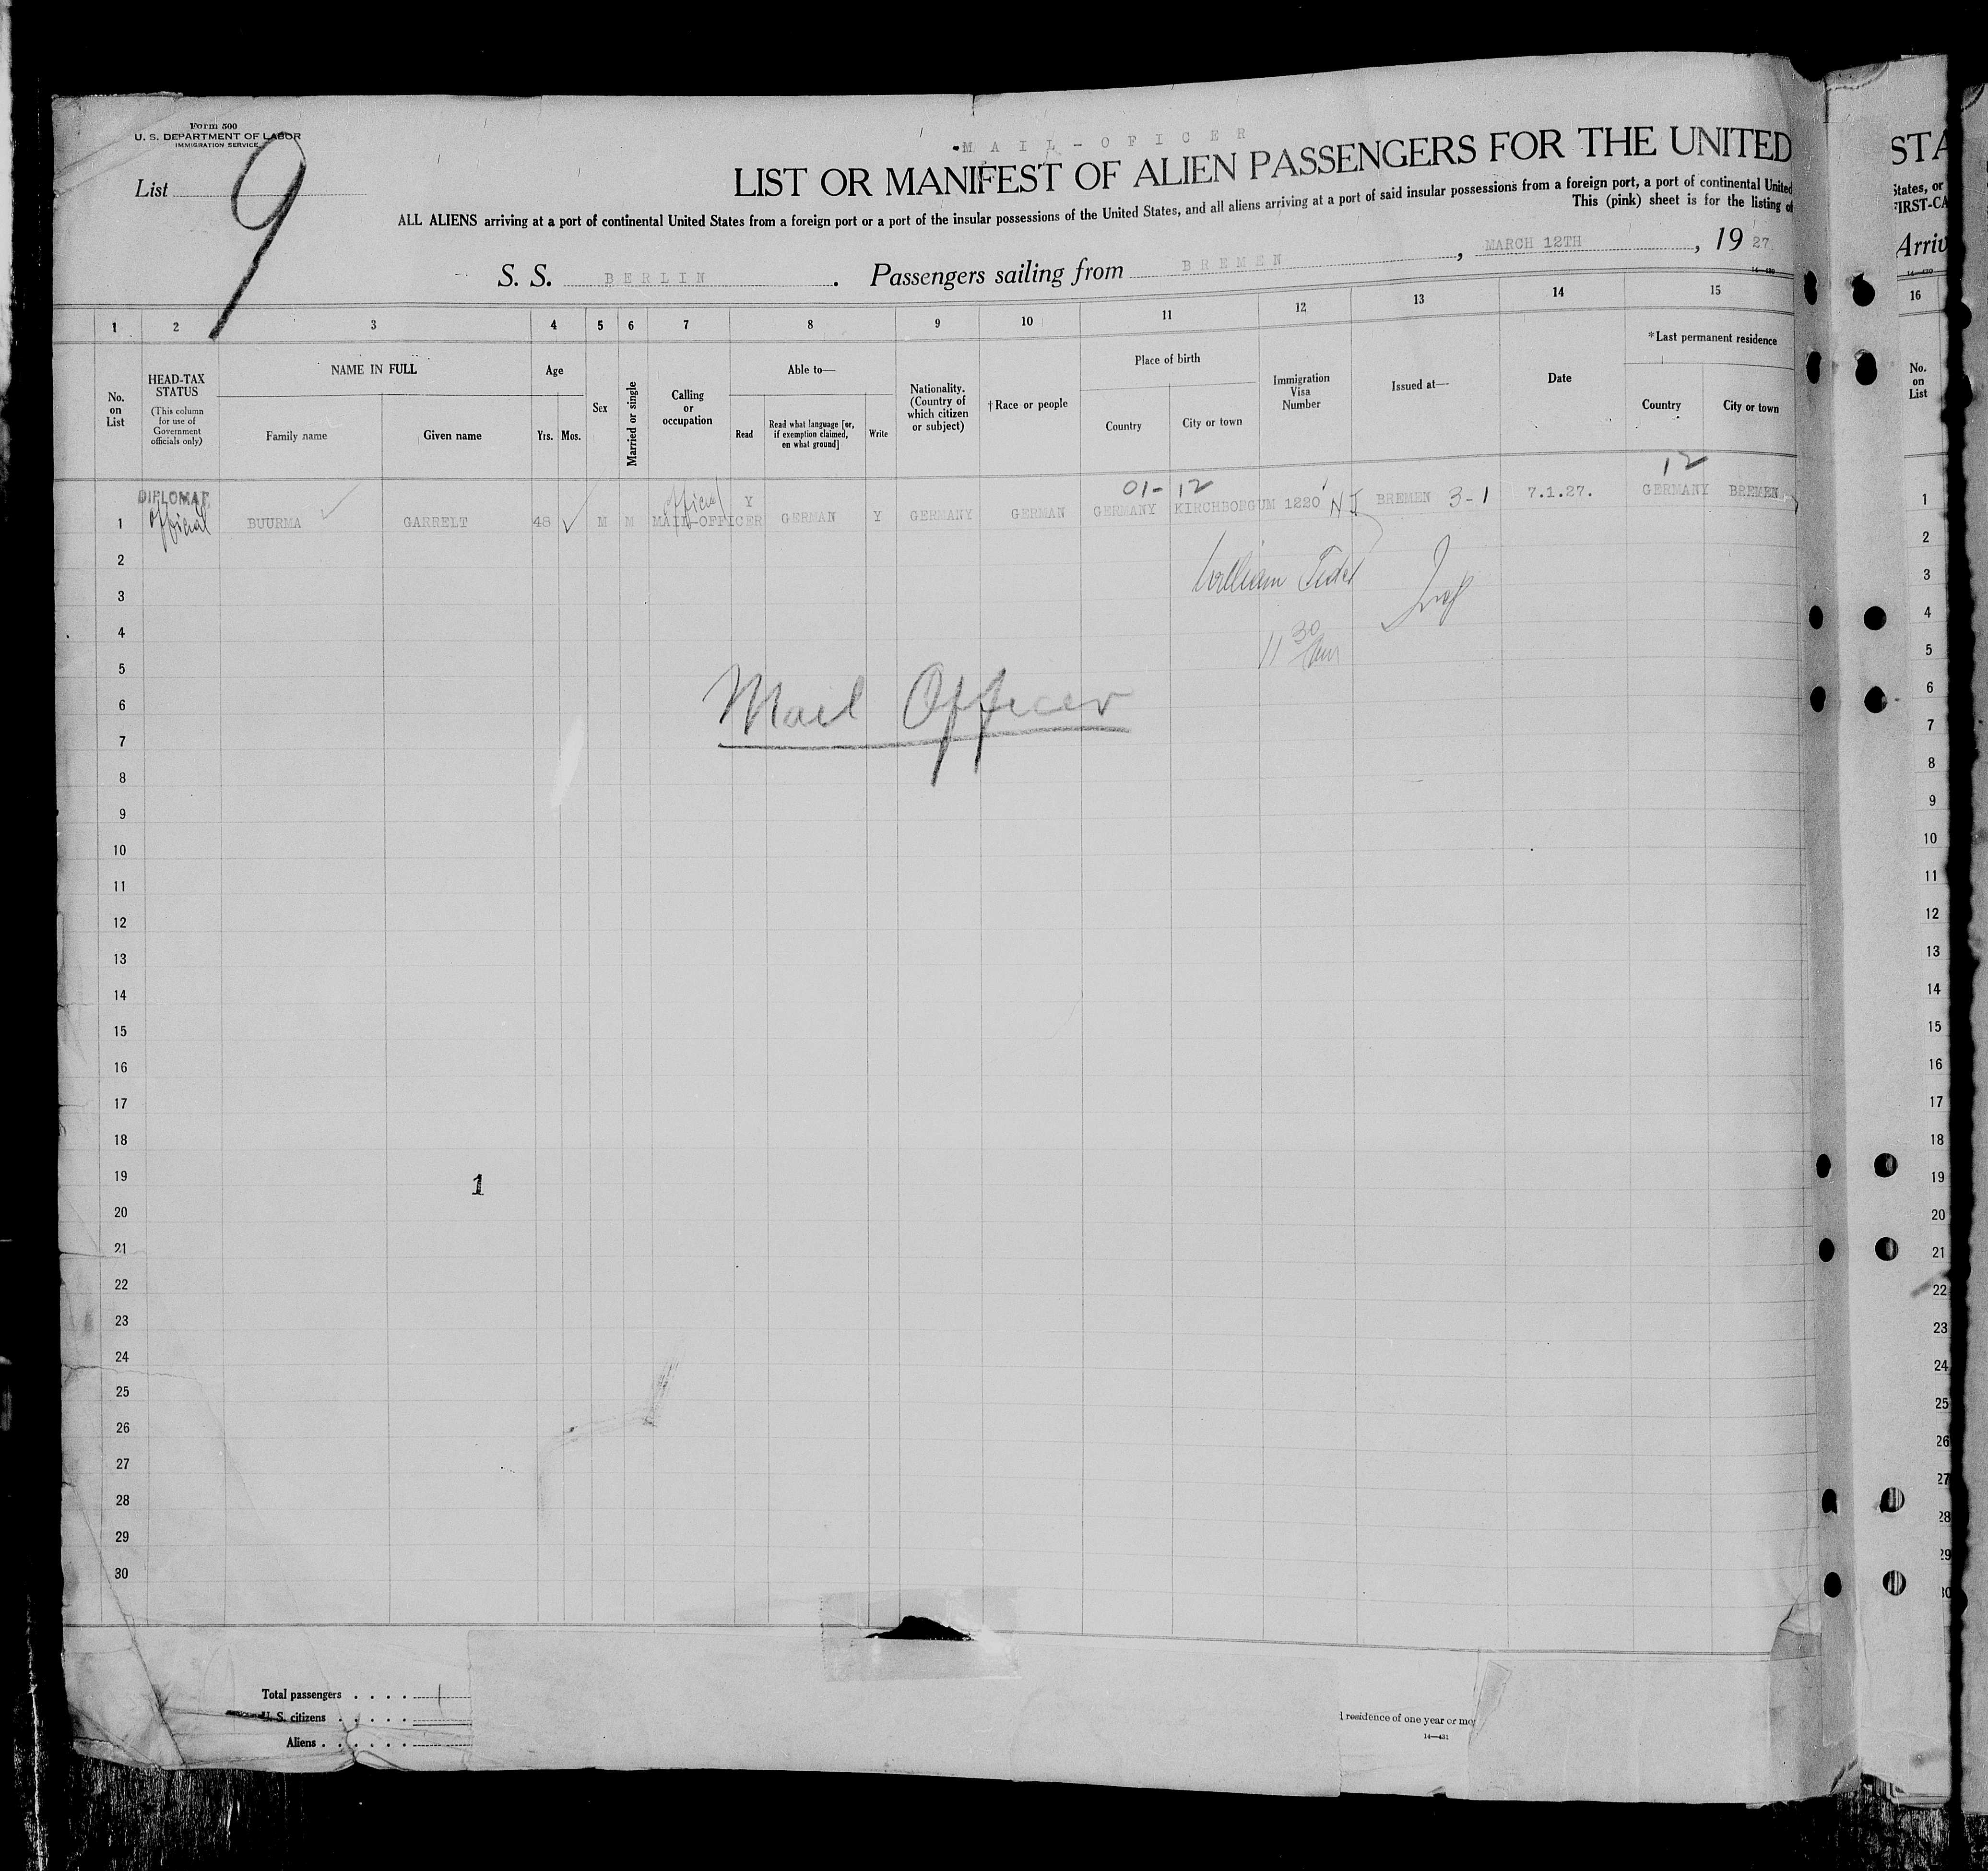 Form 500
U. S. DEPARTMENT OF LABOR
IMMIGRATION SERVICE
List
9
MAIL-OFICER
LIST OR MANIFEST OF ALIEN PASSENGERS FOR THE UNITED
ALL ALIENS arriving at a port of continental United States from a foreign port or a port of the insular possessions of the United States, and all aliens arriving at a port of said insular possessions from a foreign port, a port of continental United
This (pink) sheet is for the listing of
S. S. BERLIN. Passengers sailing from BREMEN, MARCH 12TH, 19 27.
14—430
1 2 3 4 5 6 7 8 9 10 11 12 13 14 15
No. on List
HEAD-TAX STATUS
(This column for use of Government officials only)
NAME IN FULL
Family name
Given name
Age
Yrs. Mos.
Sex
Married or single
Calling or occupation
Able to—
Read
Read what language [or, if exemption claimed, on what ground]
Write
Nationality. (Country of which citizen or subject)
†Race or people
Place of birth
Country
City or town
Immigration Visa Number
Issued at—
Date
*Last permanent residence
Country
City or town
01- 12
12
DIPLOMAT
official
official
1 BUURMA GARRELT 48 M M MAIL-OFFICER Y GERMAN Y GERMANY GERMAN GERMANY KIRCHBORGUM 1220 BREMEN 3-1 7.1.27. GERMANY BREMEN
2
William
3
4
11 30
5
6
Mail Officer
7
8
9
10
11
12
13
14
15
16
17
18
19
1
20
21
22
23
24
25
26
27
28
29
30
Total passengers . . . . 1
U. S. citizens . . . . .
Aliens . . . . . .
l residence of one year or mo
14—431
STA
States, or
FIRST-CA
Arriv
14—430
16
No. on List
1
2
3
4
5
6
7
8
9
10
11
12
13
14
15
16
17
18
19
20
21
22
23
24
25
26
27
28
29
30